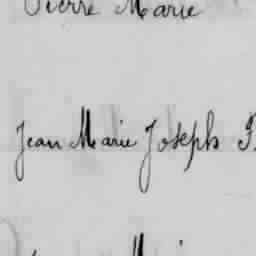 Pierre Marie
Jean Marie Joseph